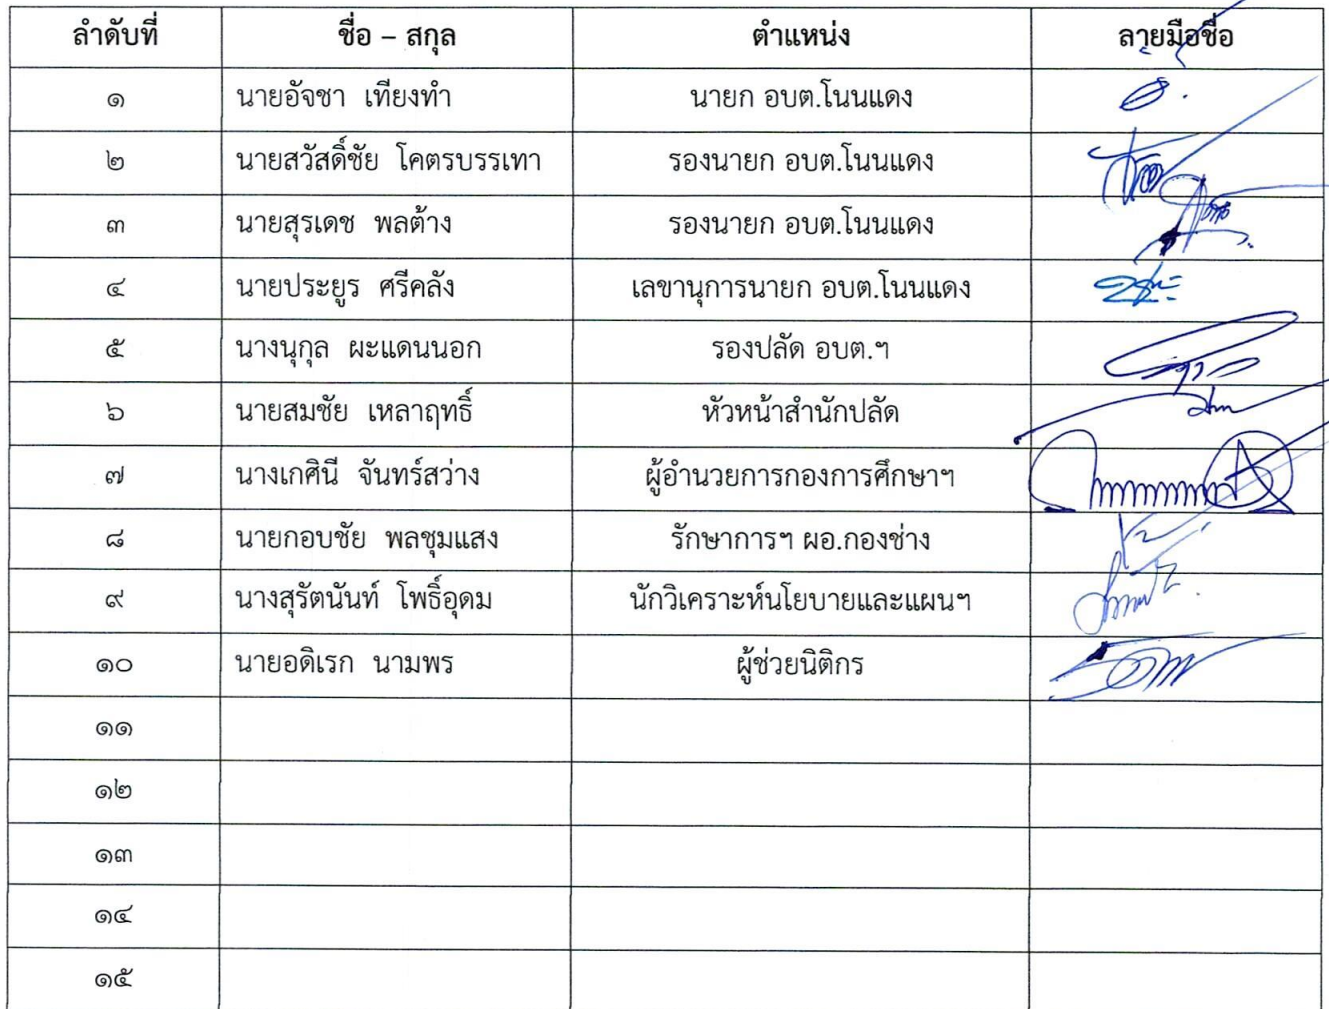 ลำดับที่ ชื่อ – สกุล ตำแหน่ง ลายมือชื่อ
๑ นายอัจชา เทียงทำ นายก อบต.โนนแดง
๒ นายสวัสดิ์ชัย โคตรบรรเทา รองนายก อบต.โนนแดง
๓ นายสุรเดช พลต้าง รองนายก อบต.โนนแดง
๔ นายประยูร ศรีคลัง เลขานุการนายก อบต.โนนแดง
๕ นางนุกุล ผะแดนนอก รองปลัด อบต.ฯ
๖ นายสมชัย เหลาฤทธิ์ หัวหน้าสำนักปลัด
๗ นางเกศินี จันทร์สว่าง ผู้อำนวยการกองการศึกษาฯ
๘ นายกอบชัย พลชุมแสง รักษาการฯ ผอ.กองช่าง
๙ นางสุรัตนันท์ โพธิ์อุดม นักวิเคราะห์นโยบายและแผนฯ
๑๐ นายอดิเรก นามพร ผู้ช่วยนิติกร
๑๑
๑๒
๑๓
๑๔
๑๕